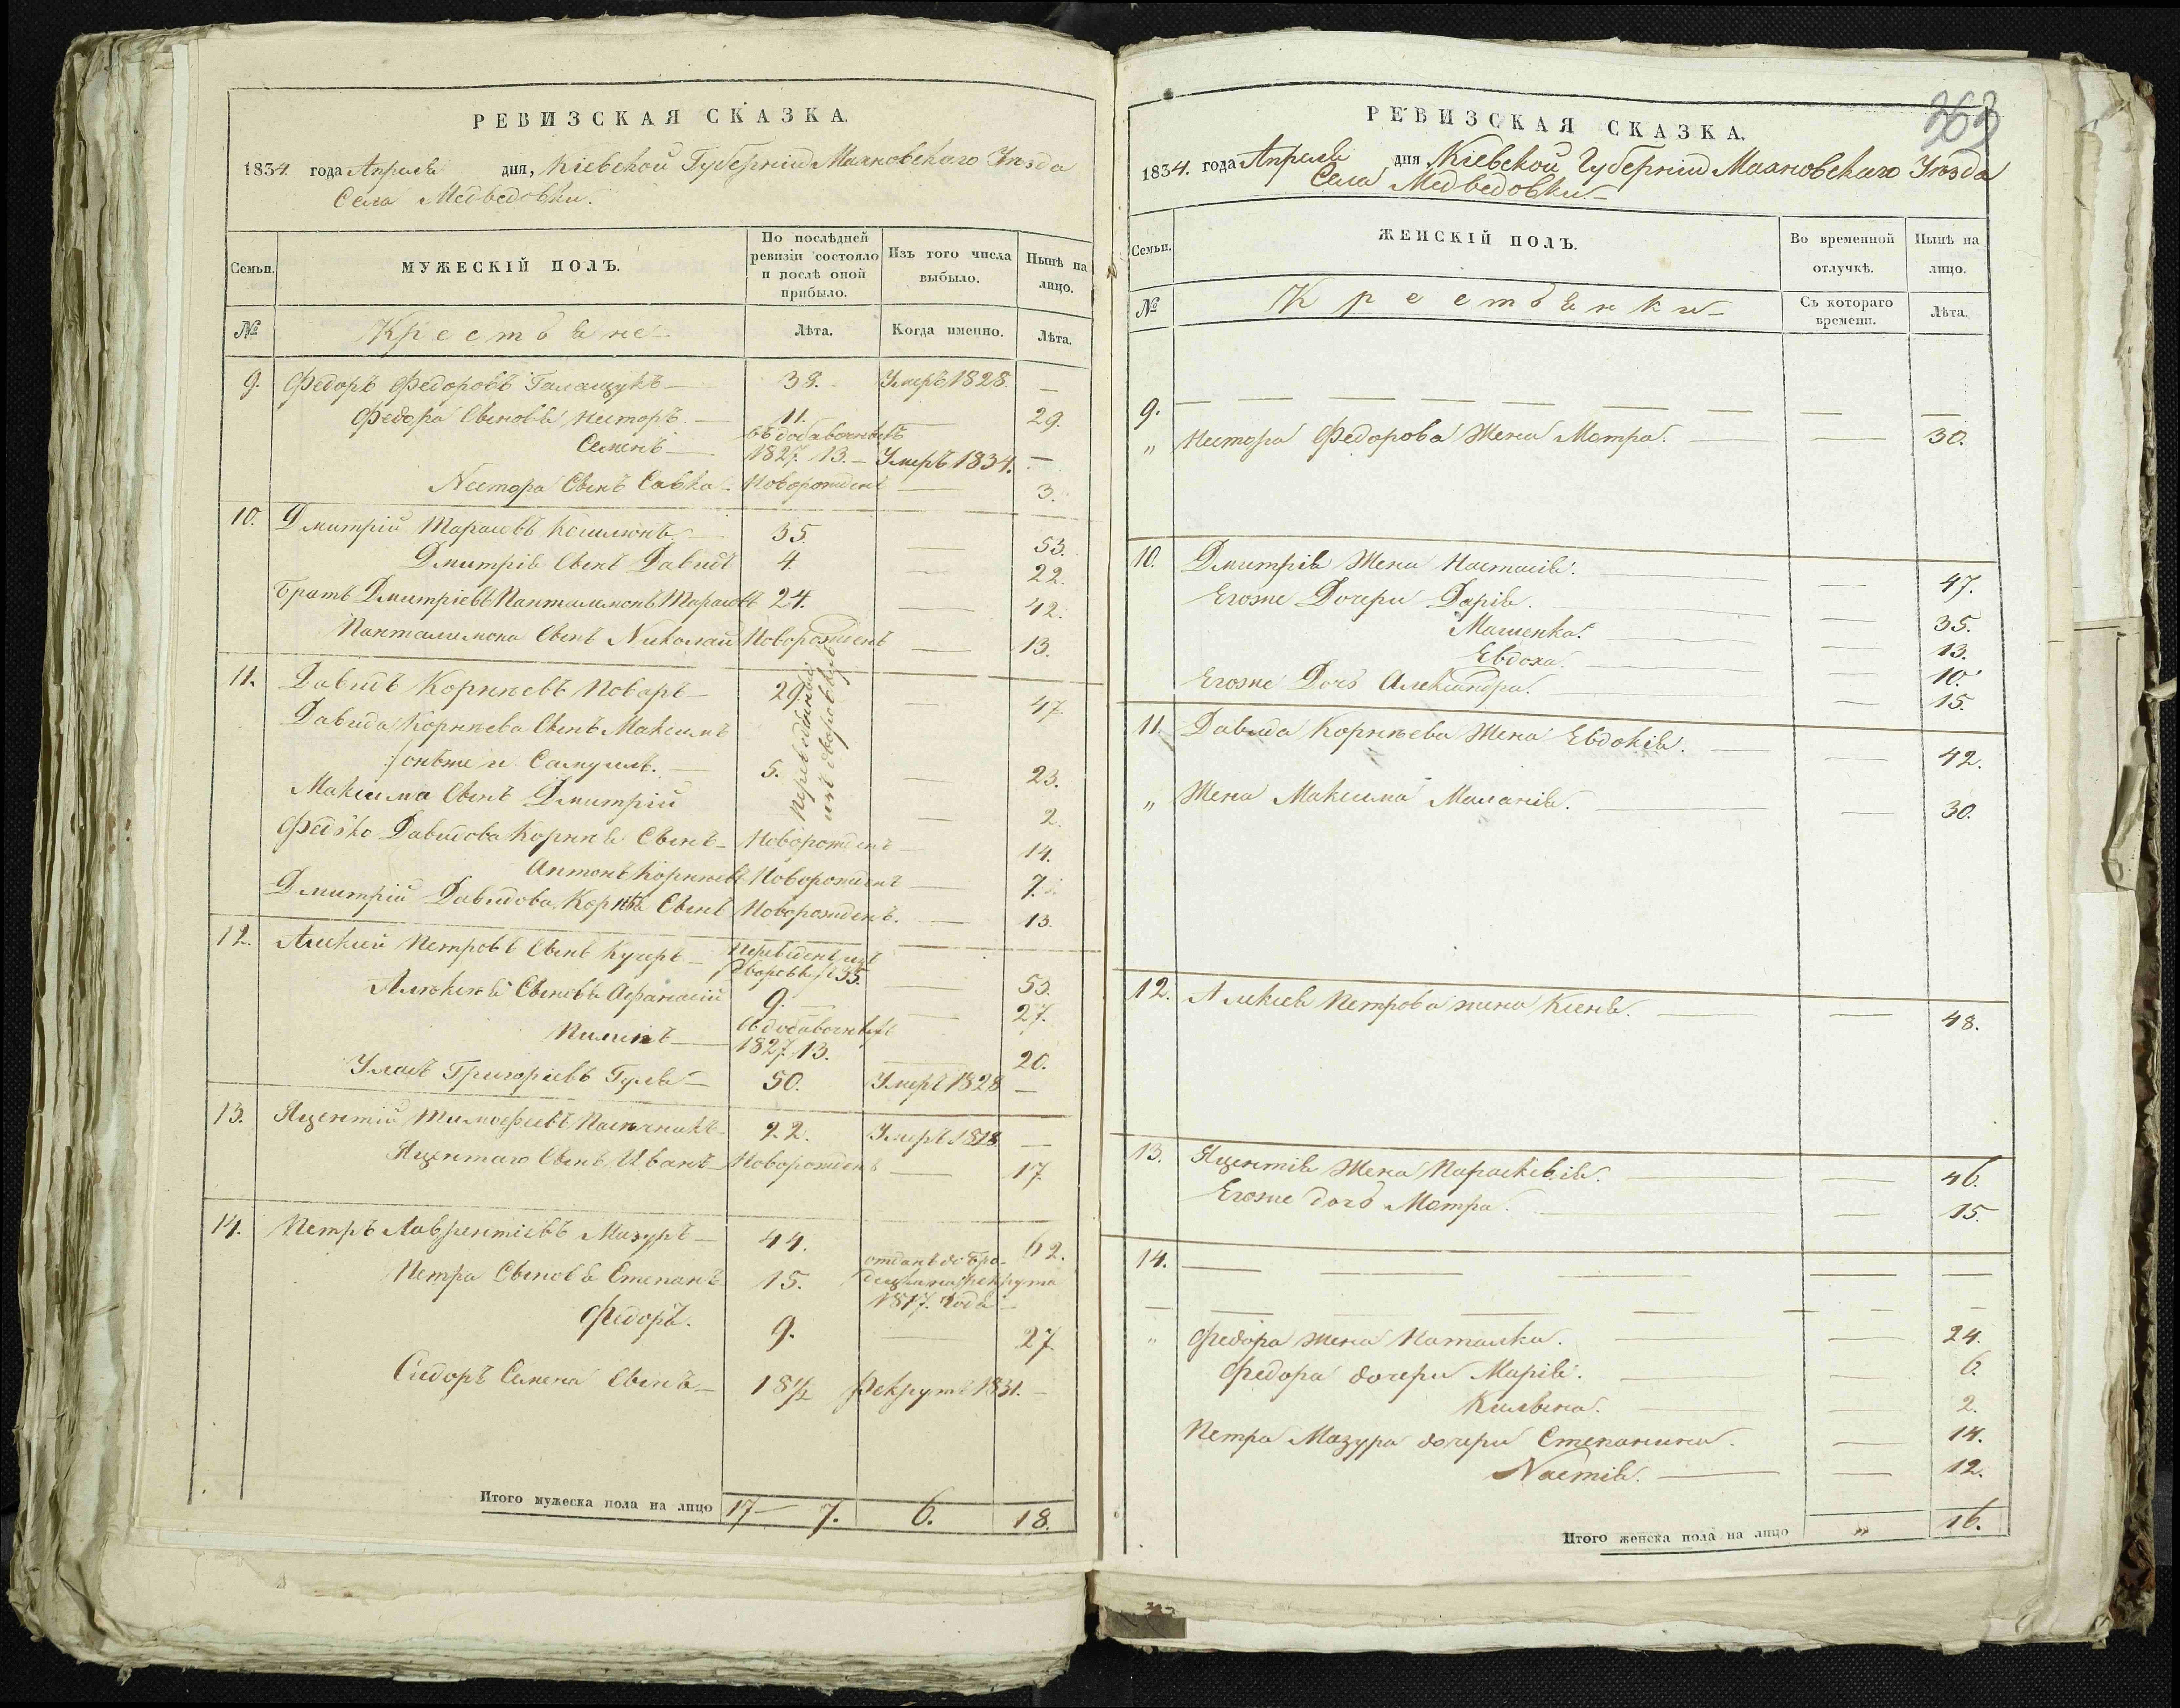 РЕВИЗСКАЯ СКАЗКА.
1834. года Апреля дня, Кіевской Губерніи Махновскаго Уѣзда
Села Медведовки.
Семьи.
МУЖЕСКІЙ ПОЛЪ.
По послѣдней ревизіи состояло и послѣ оной прибыло.
Изъ того числа выбыло.
Нынѣ на лицо.
№
Крестьяне
Лѣта.
Когда именно.
Лѣта.
9. Федоръ Федоровъ Галащукъ 38. Умеръ 1828. —
Федора Сыновья Несторъ. 11. — 29.
Семенъ въ добавочныхъ 1827. 13. Умеръ 1834. —
Нестора Сынъ Савка Новорожденъ — 3.
10. Дмитрій Тарасовъ 35. — 53.
Дмитрія Сынъ Давидъ 4. — 22.
Братъ Дмитріевъ Панталимонъ Тарасовъ 24. — 42.
Панталимона Сынъ Николай Новорожденъ — 13.
11. Давидъ Корнѣевъ Поваръ 29. — 47.
Давида Корнѣева Сынъ Максимъ
онъже и Самуилъ. 5. — 23.
Максима Сынъ Дмитрій — 2.
Федько Давидова Корнѣя Сынъ Новорожденъ — 14.
Антонъ Корнѣевъ Новорожденъ — 7.
Дмитрій Давидова Корнѣя Сынъ Новорожденъ. — 13.
12. Алексей Петровъ Сынъ Кучеръ Переведенъ изъ
дворовыхъ 35. 53.
Алексѣя Сыновья Афанасій 9. — 27.
Пилипъ въ добавочныхъ 1827. 13. — 20.
Уласъ Григоріевъ Гуля 50. Умеръ 1828 —
13. Яцентій Тимофеевъ Пасечникъ 22. Умеръ 1818 —
Яцентаго Сынъ Иванъ Новорожденъ — 17.
14. Петръ Лаврентіевъ Мазуръ 44. 62.
Петра Сыновья Степанъ 15. отданъ до
рекрута
1817. года —
Федоръ. 9. — 27.
Сидоръ Семена Сынъ 18½ рекрутъ 1831. —
Итого мужеска пола на лицо 17 — 7. 6. 18.
363
РЕВИЗСКАЯ СКАЗКА.
1834. года Апреля дня Кіевской Губерніи Махновскаго Уѣзда
Села Медведовки.
Семьи.
ЖЕНСКІЙ ПОЛЪ.
Во временной отлучкѣ.
Нынѣ на лицо.
№
Крестьянки
Съ котораго времени.
Лѣта.
9. — — —
„ Нестора Федорова Жена Мотра. — 30.
10. Дмитрія Жена Настасія. — 47.
Егоже Дочери Дарія. — 35.
Машенка. — 13.
Евдоха. — 10.
Егоже Дочь Александра. — 15.
11. Давида Корнѣева Жена Евдокія. — 42.
„ Жена Максима Маланія. — 30.
12. Алексея Петрова жена Ксеня. — 48.
13. Яцентія Жена Параскевія. — 46.
Егоже дочь Мотра. — 15.
14. — — —
— — —
„ Федора жена Наталка. — 24.
Федора дочери Марія. — 6.
— 2.
Петра Мазура дочери Степанина. — 14.
Настія. — 12.
Итого женска пола на лицо „ 16.